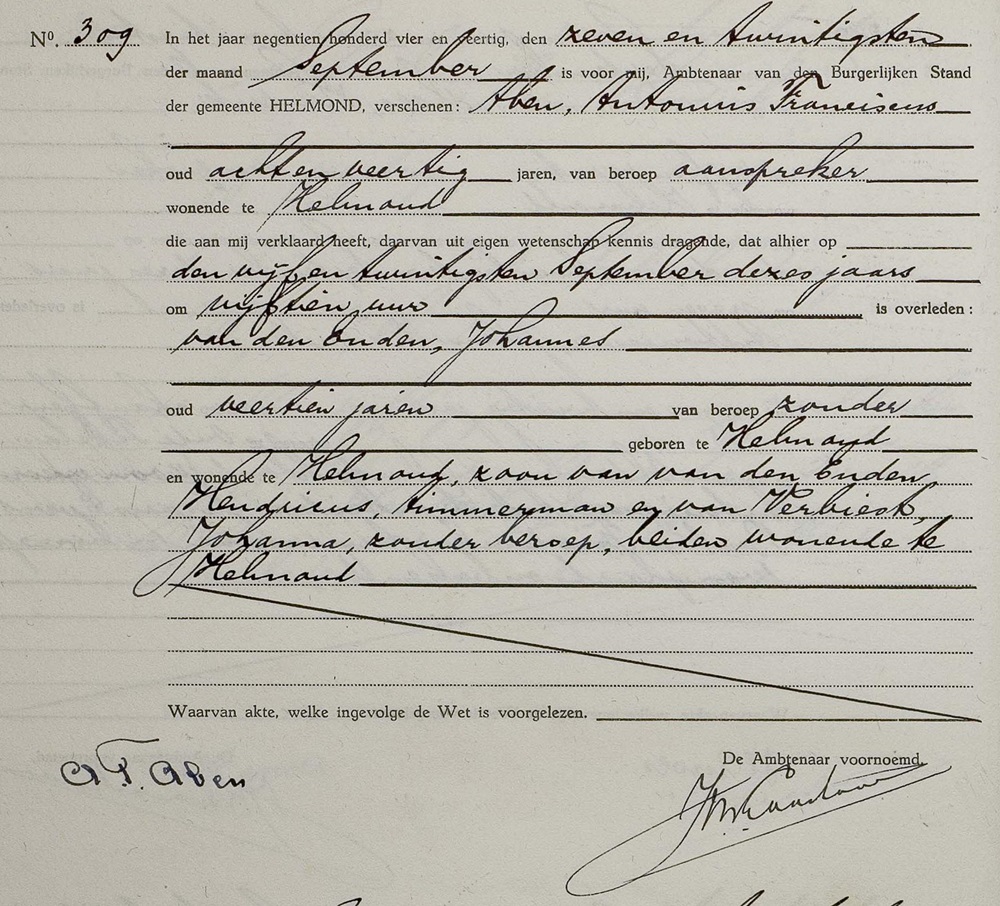 Nº. 309 In het jaar negentien honderd vier en veertig, den zeven en twintigsten
der maand September is voor mij, Ambtenaar van den Burgerlijken Stand
der gemeente HELMOND, verschenen: Aben, Antonius Franciscus
oud acht en veertig jaren, van beroep aanspreker
wonende te Helmond
die aan mij verklaard heeft, daarvan uit eigen wetenschap kennis dragende, dat alhier op
den vijf en twintigsten September dezes jaars
om vijftien uur is overleden:
van den Enden, Johannes
oud veertien jaren van beroep zonder
geboren te Helmond
en wonende te Helmond, zoon van van den Enden
Hendricus, timmerman en van Verbiest,
Johanna, zonder beroep, beiden wonende te
Helmond
Waarvan akte, welke ingevolge de Wet is voorgelezen.
De Ambtenaar voornoemd,
A F. Aben